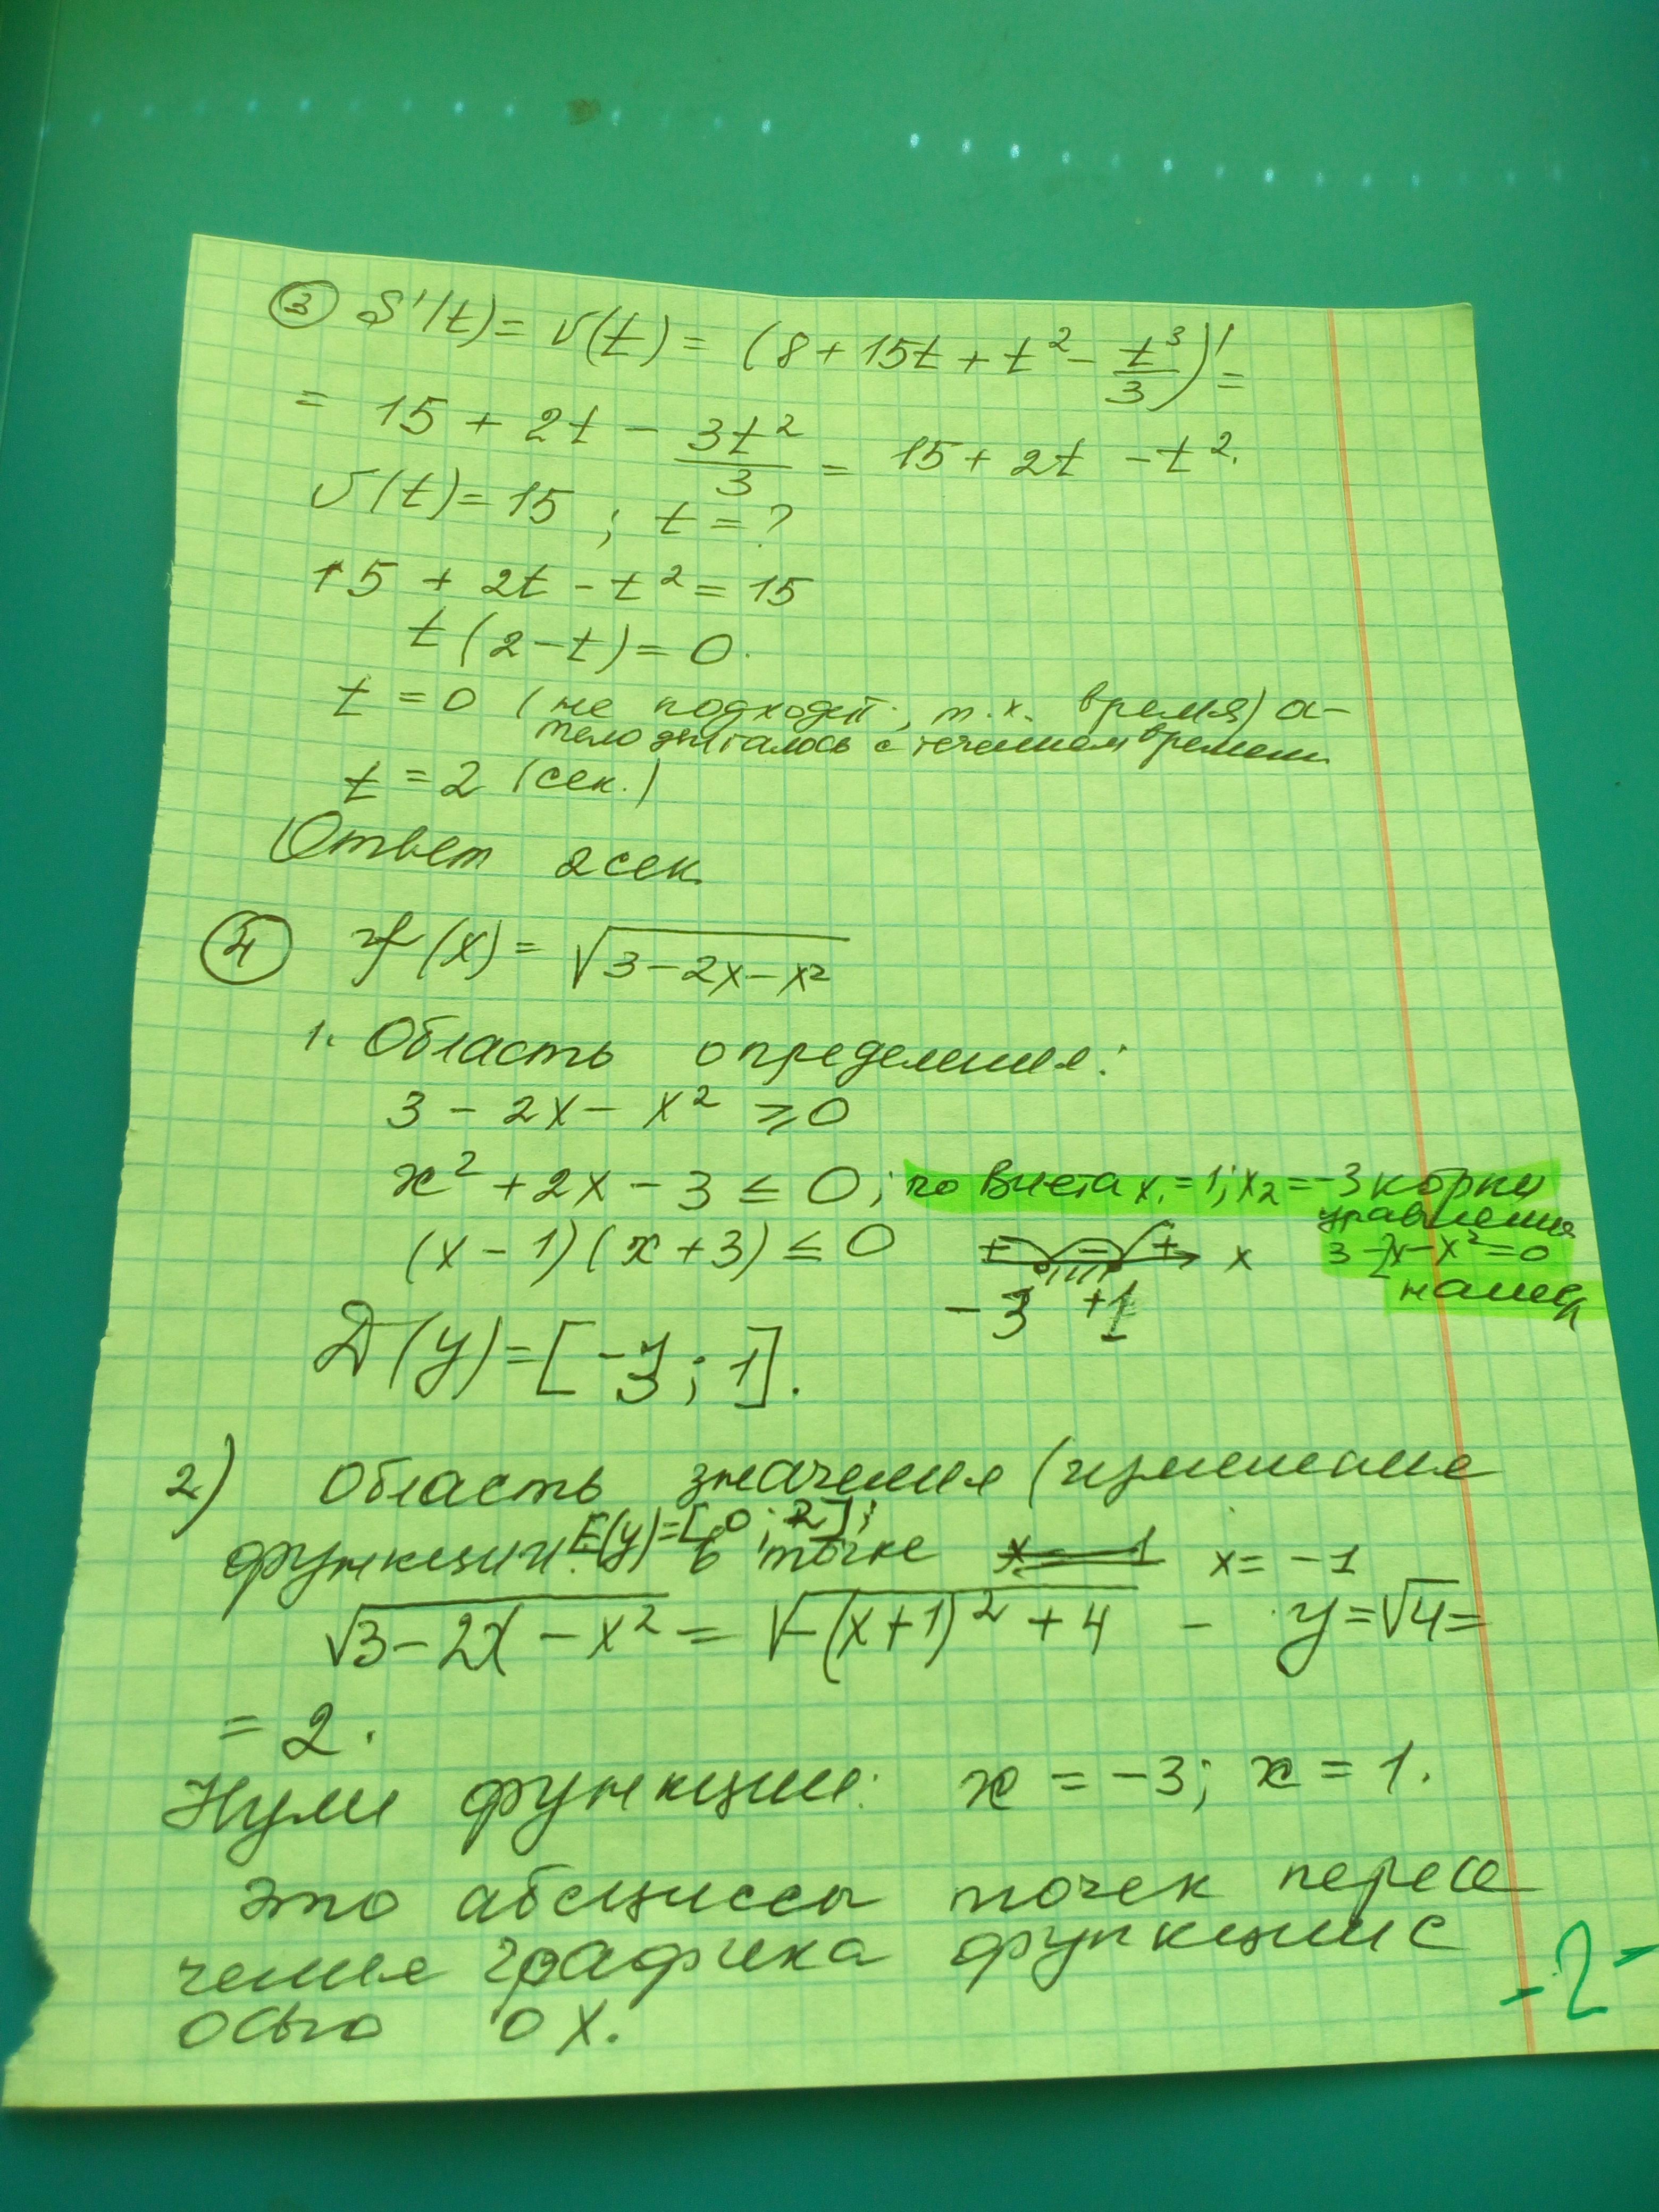 ③ S'(t) = v(t) = (8 + 15t + t² - t³/3)' =
= 15 + 2t - 3t²/3 = 15 + 2t - t².
v(t) = 15 ; t = ?
15 + 2t - t² = 15
t(2 - t) = 0.
t = 0 (не подходит, т.к. время) а-
тело двигалось с течением времени
t = 2 (сек.)
Ответ 2 сек.
④ f(x) = √(3 - 2x - x²)
1. Область определения:
3 - 2x - x² ≥ 0
x² + 2x - 3 ≤ 0; по Виета x₁ = 1; x₂ = -3 корни
уравнения
(x - 1)(x + 3) ≤ 0 + - + x 3 - 2x - x² = 0
-3 +1
D(y) = [-3; 1].
2) Область значения (изменения
функции. E(y) = [0; 2]; в точке x = -1
√(3 - 2x - x²) = √(-(x+1)² + 4) - y = √4 =
= 2.
Нули функции: x = -3; x = 1.
это абсциссы точек пересе
чения графика функции с
осью OX.
-2-